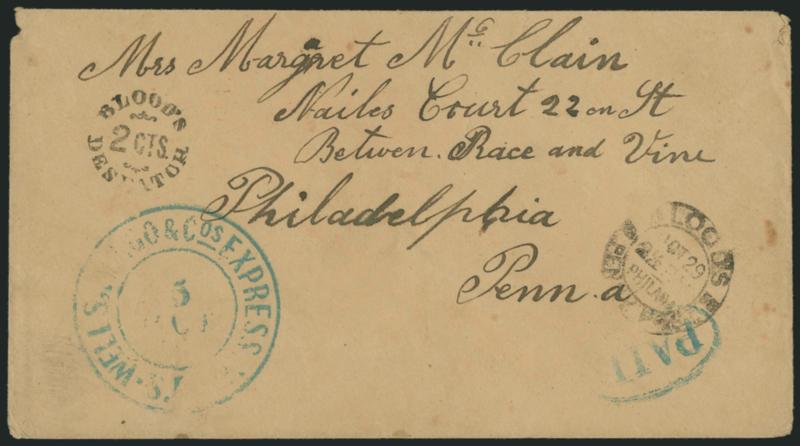 Mrs Margaret Mc Clain
Nailes Court 22 on St
Betwen. Race and Vine
Philadelphia
Penn.a
BLOOD'S
2 CTS.
DESPATCH
WELLS, FARGO & Cos EXPRESS
5
BLOOD'S
OCT 29
PHILADA
PAID